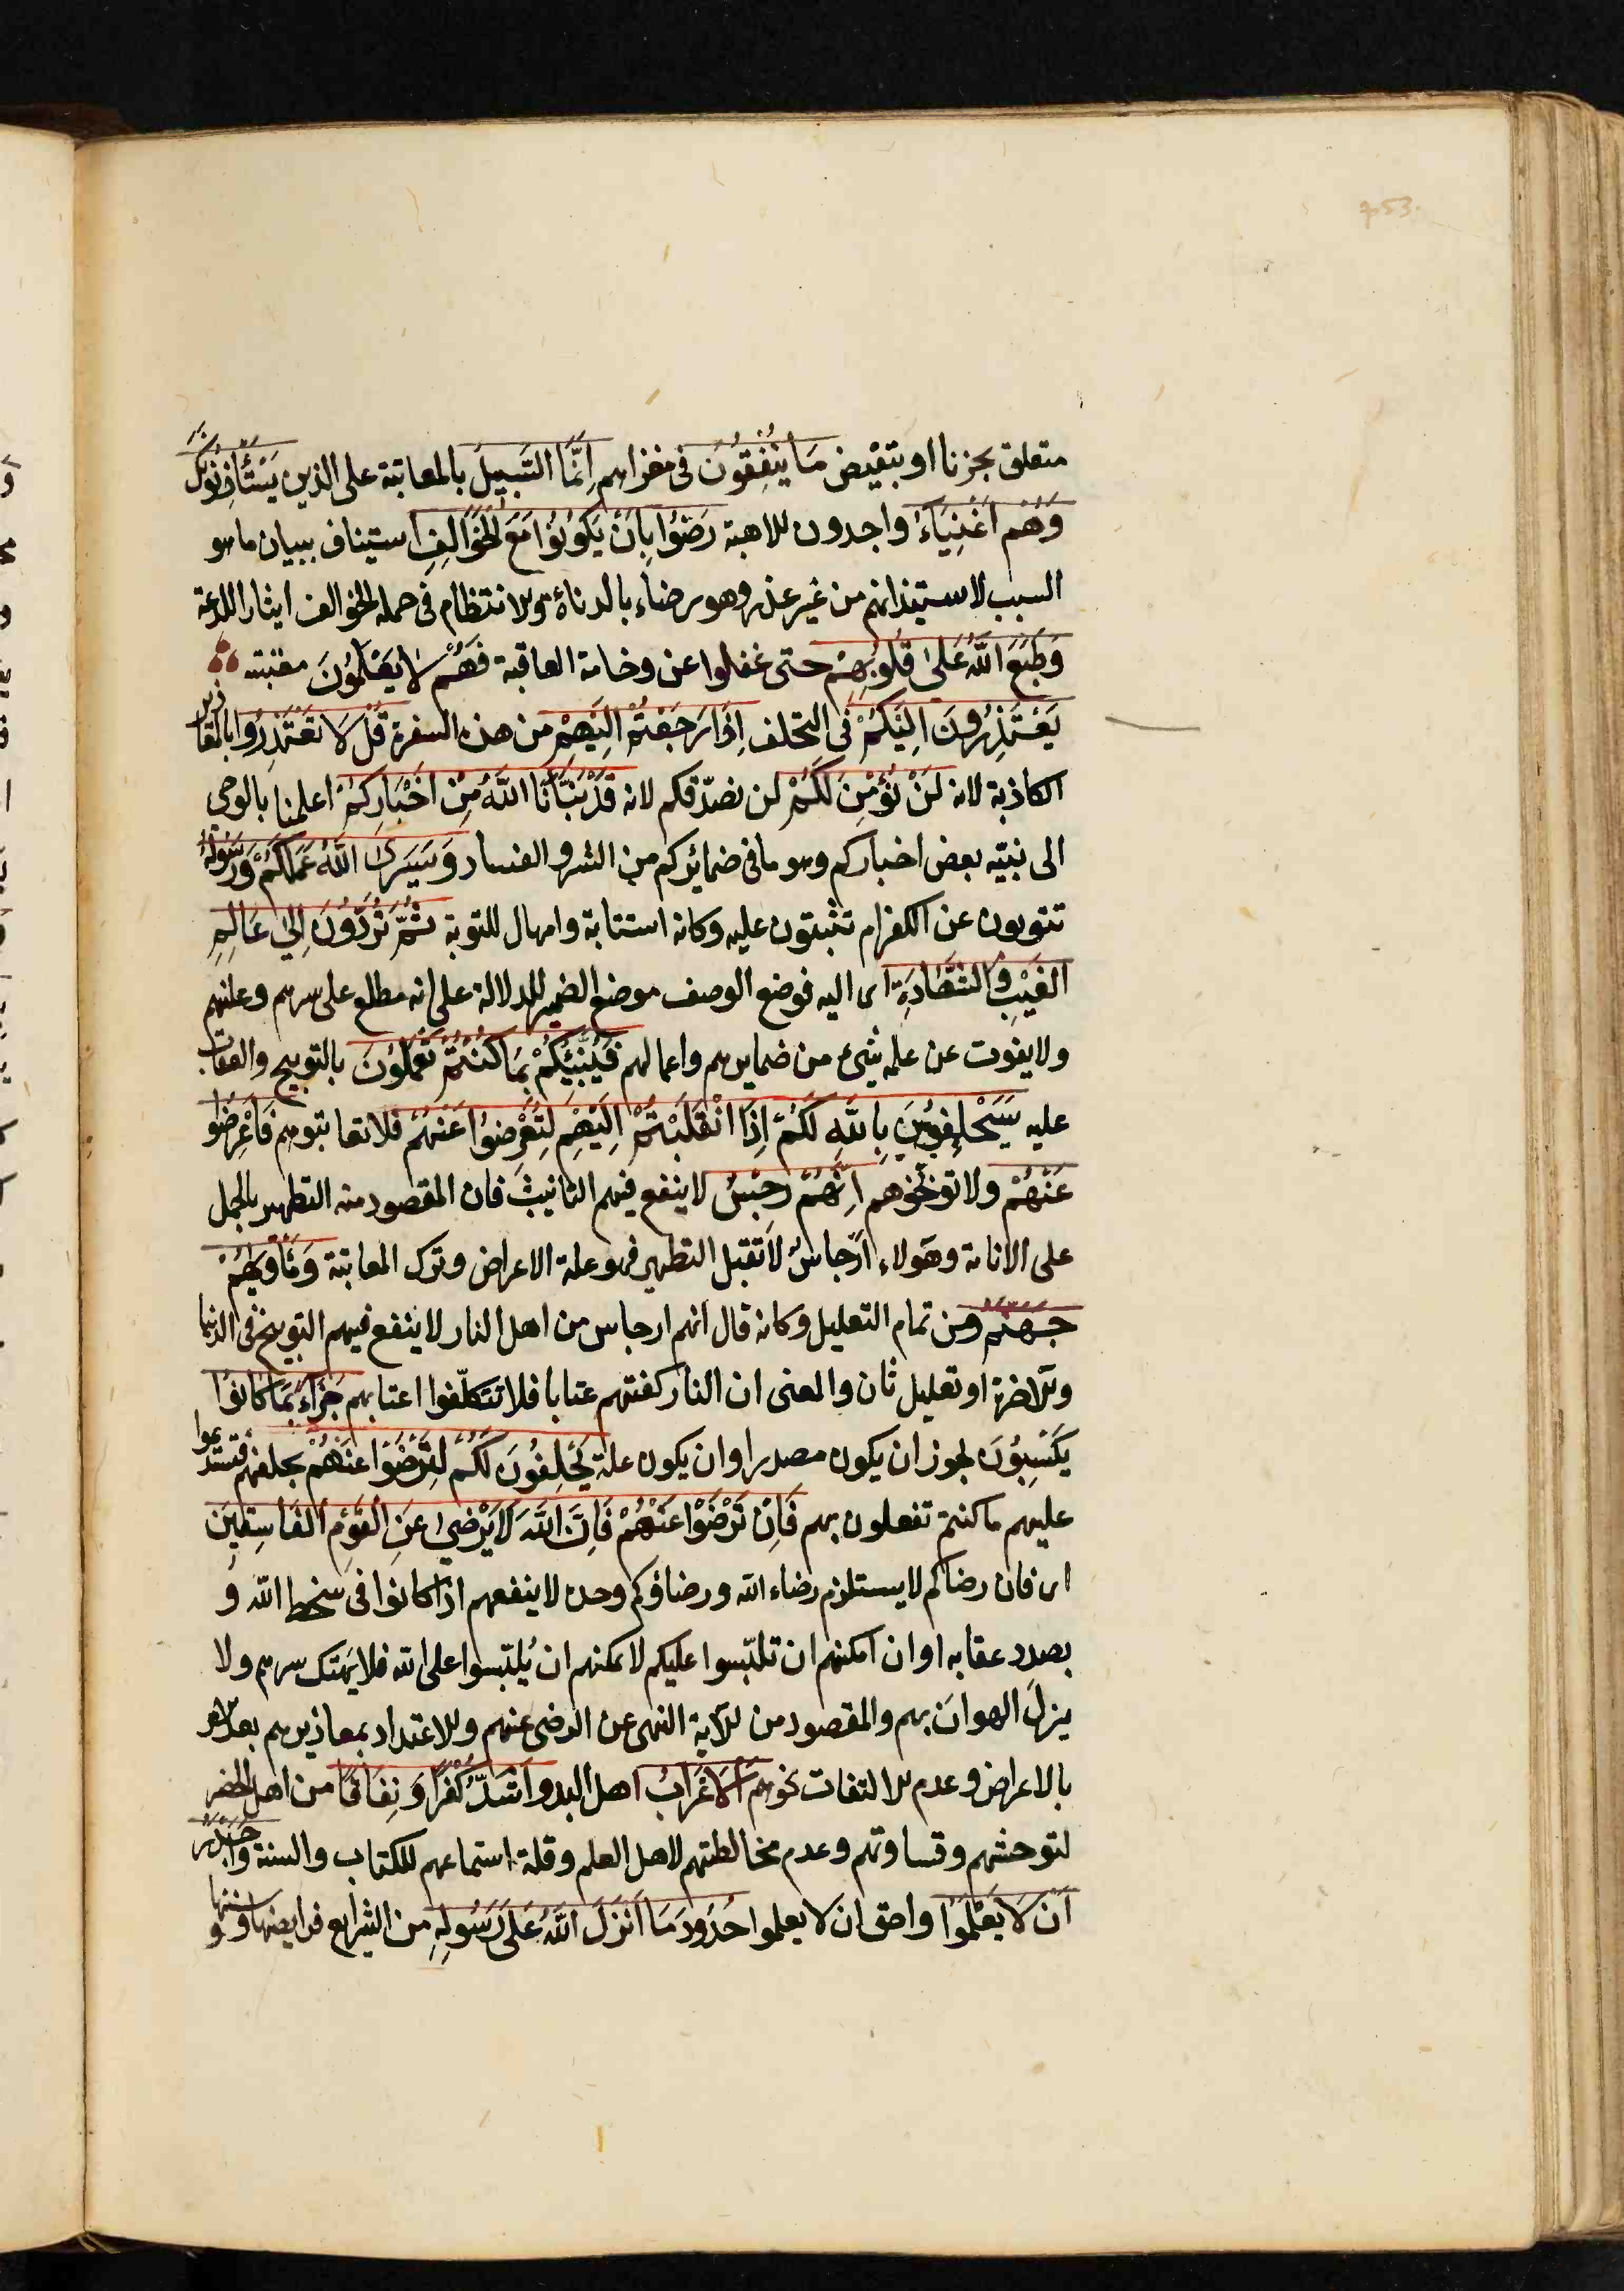 متعلق بحزنا او بتفيض مَا يُنْفِقُونَ فى مغزاهم اِنَّمَا السَّبِيلُ بالمعاتبة على الذين يَسْتَأْذِنُونَكَ
وَهُمْ اَغْنِيَاءُ واجدون للاهبة رَضُوا بِاَنْ يَكُونُوا مَعَ الْخَوَالِفِ استيناف ببيان ما هو
السبب لاستيذانهم من غير عذر وهو رضاء بالدناءة والانتظام فى جملة الخوالف ايثارا للدعة
وَطَبَعَ اللّٰهُ عَلٰى قُلُوبِهِمْ حتى غفلوا عن وخامة العاقبة فَهُمْ لَا يَعْلَمُونَ مغبته
يَعْتَذِرُونَ اِلَيْكُمْ فى التخلف اِذَا رَجَعْتُمْ اِلَيْهِمْ من هذه السفرة قُلْ لَا تَعْتَذِرُوا بالمعاذير
الكاذبة لانه لَنْ نُؤْمِنَ لَكُمْ لن نصدّقكم لانه قَدْ نَبَّأَنَا اللّٰهُ مِنْ اَخْبَارِكُمْ اعلمنا بالوحى
الى نبيّه بعض اخباركم وهو ما فى ضمائركم من الشر والفساد وَسَيَرَى اللّٰهُ عَمَلَكُمْ وَرَسُولُهُ
تتوبون عن الكفر ام تثبتون عليه وكانه استتابة وامهال للتوبة ثُمَّ تُرَدُّونَ اِلٰى عَالِمِ
الغَيْبِ وَالشَّهَادَةِ اى اليه فوضع الوصف موضع الضمير للدلالة على انه مطلع على سرهم وعلنهم
ولا يفوت عن علمه شىء من ضمايرهم واعمالهم فَيُنَبِّئُكُمْ بِمَا كُنْتُمْ تَعْمَلُونَ بالتوبيخ والعقاب
عليه سَيَحْلِفُونَ بِاللّٰهِ لَكُمْ اِذَا انْقَلَبْتُمْ اِلَيْهِمْ لِتُعْرِضُوا عَنْهُمْ فلا تعاتبوهم فَاَعْرِضُوا
عَنْهُمْ ولا توبّخوهم اِنَّهُمْ رِجْسٌ لا ينفع فيهم التانيث فان المقصود منه التطهير بالحمل
على الانابة وهَولاء اَرجاسٌ لا تقبل التطهير فهو علة الاعراض وترك المعاتبة وَمَأْوٰيهُمْ
جَهَنَّمُ من تمام التعليل وكانه قال انهم ارجاس من اهل النار لا ينفع فيهم التوبيخ فى الدنيا
والاخرة او تعليل ثان والمعنى ان النار كفتهم عتابا فلا تتكلّفوا اعتابهم جَزَاءً بِمَا كَانُوا
يَكْسِبُونَ يجوز ان يكون مصدرا وان يكون علة يَحْلِفُونَ لَكُمْ لِتَرْضَوْا عَنْهُمْ بحلفهم فتستديموا
عليهم ما كنتم تفعلون بهم فَاِنْ تَرْضَوْا عَنْهُمْ فَاِنَّ اللّٰهَ لَا يَرْضٰى عَنِ الْقَوْمِ الْفَاسِقِينَ
اى فان رضاكم لا يستلزم رضاء الله ورضاؤكم وحده لا ينفعهم اذا كانوا فى سخط الله و
بصدد عقابه او ان امكنهم ان تلبّسوا عليكم لا يمكنهم ان يُلبّسوا على الله فلا يهتك سرهم ولا
ينزل الهوان بهم والمقصود من الآية النهى عن الرضى عنهم والاغتداد بمعاذيرهم بعد الامر
بالاعراض وعدم الالتفات نحوهم اَلْاَعْرَابُ اهل البدو اَشَدُّ كُفْرًا وَنِفَاقًا من اهل الحضر
لتوحشهم وقساوتهم وعدم مخالطتهم لاهل العلم وقلة استماعهم للكتاب والسنة وَاَجْدَرُ
اَنْ لَا يَعْلَمُوا واحق ان لا يعلموا حُدُودَ مَا اَنْزَلَ اللّٰهُ عَلٰى رَسُولِهِ من الشرايع فرايضها وسننها و